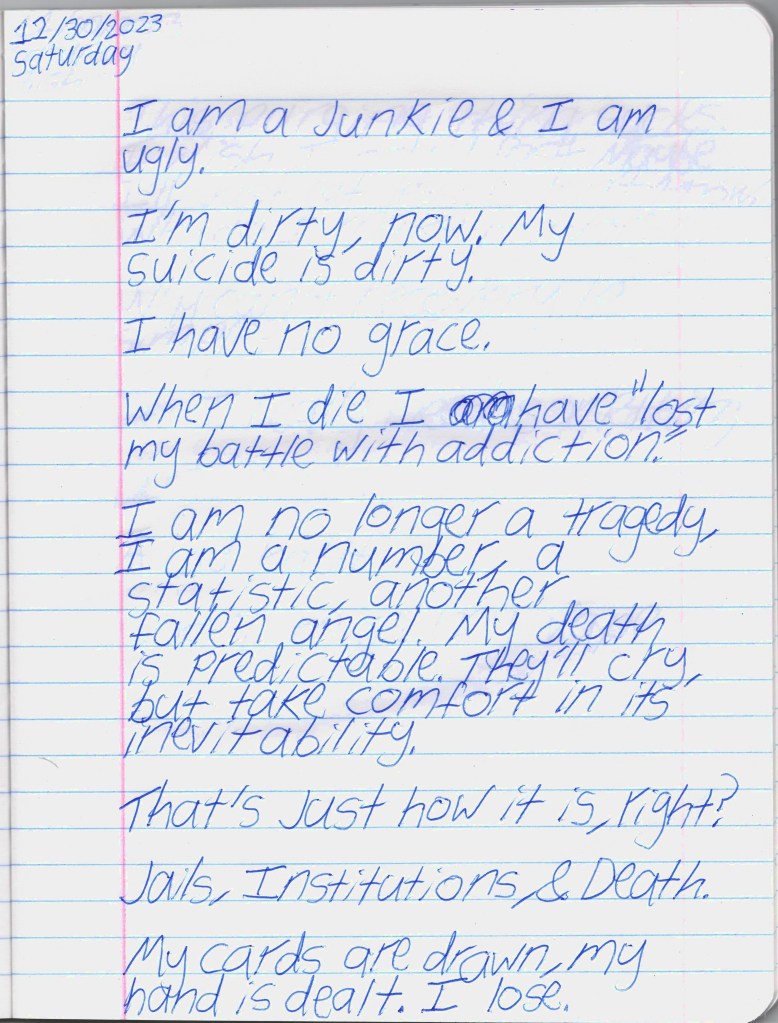 12/30/2023
Saturday
I am a Junkie & I am
ugly.
I'm dirty, now. My
suicide is dirty.
I have no grace.
When I die I have "lost
my battle with addiction."
I am no longer a tragedy,
I am a number, a
statistic, another
fallen angel. My death
is predictable. They'll cry,
but take comfort in its
inevitability.
That's just how it is, right?
Jails, Institutions, & Death.
My cards are drawn, my
hand is dealt. I lose.